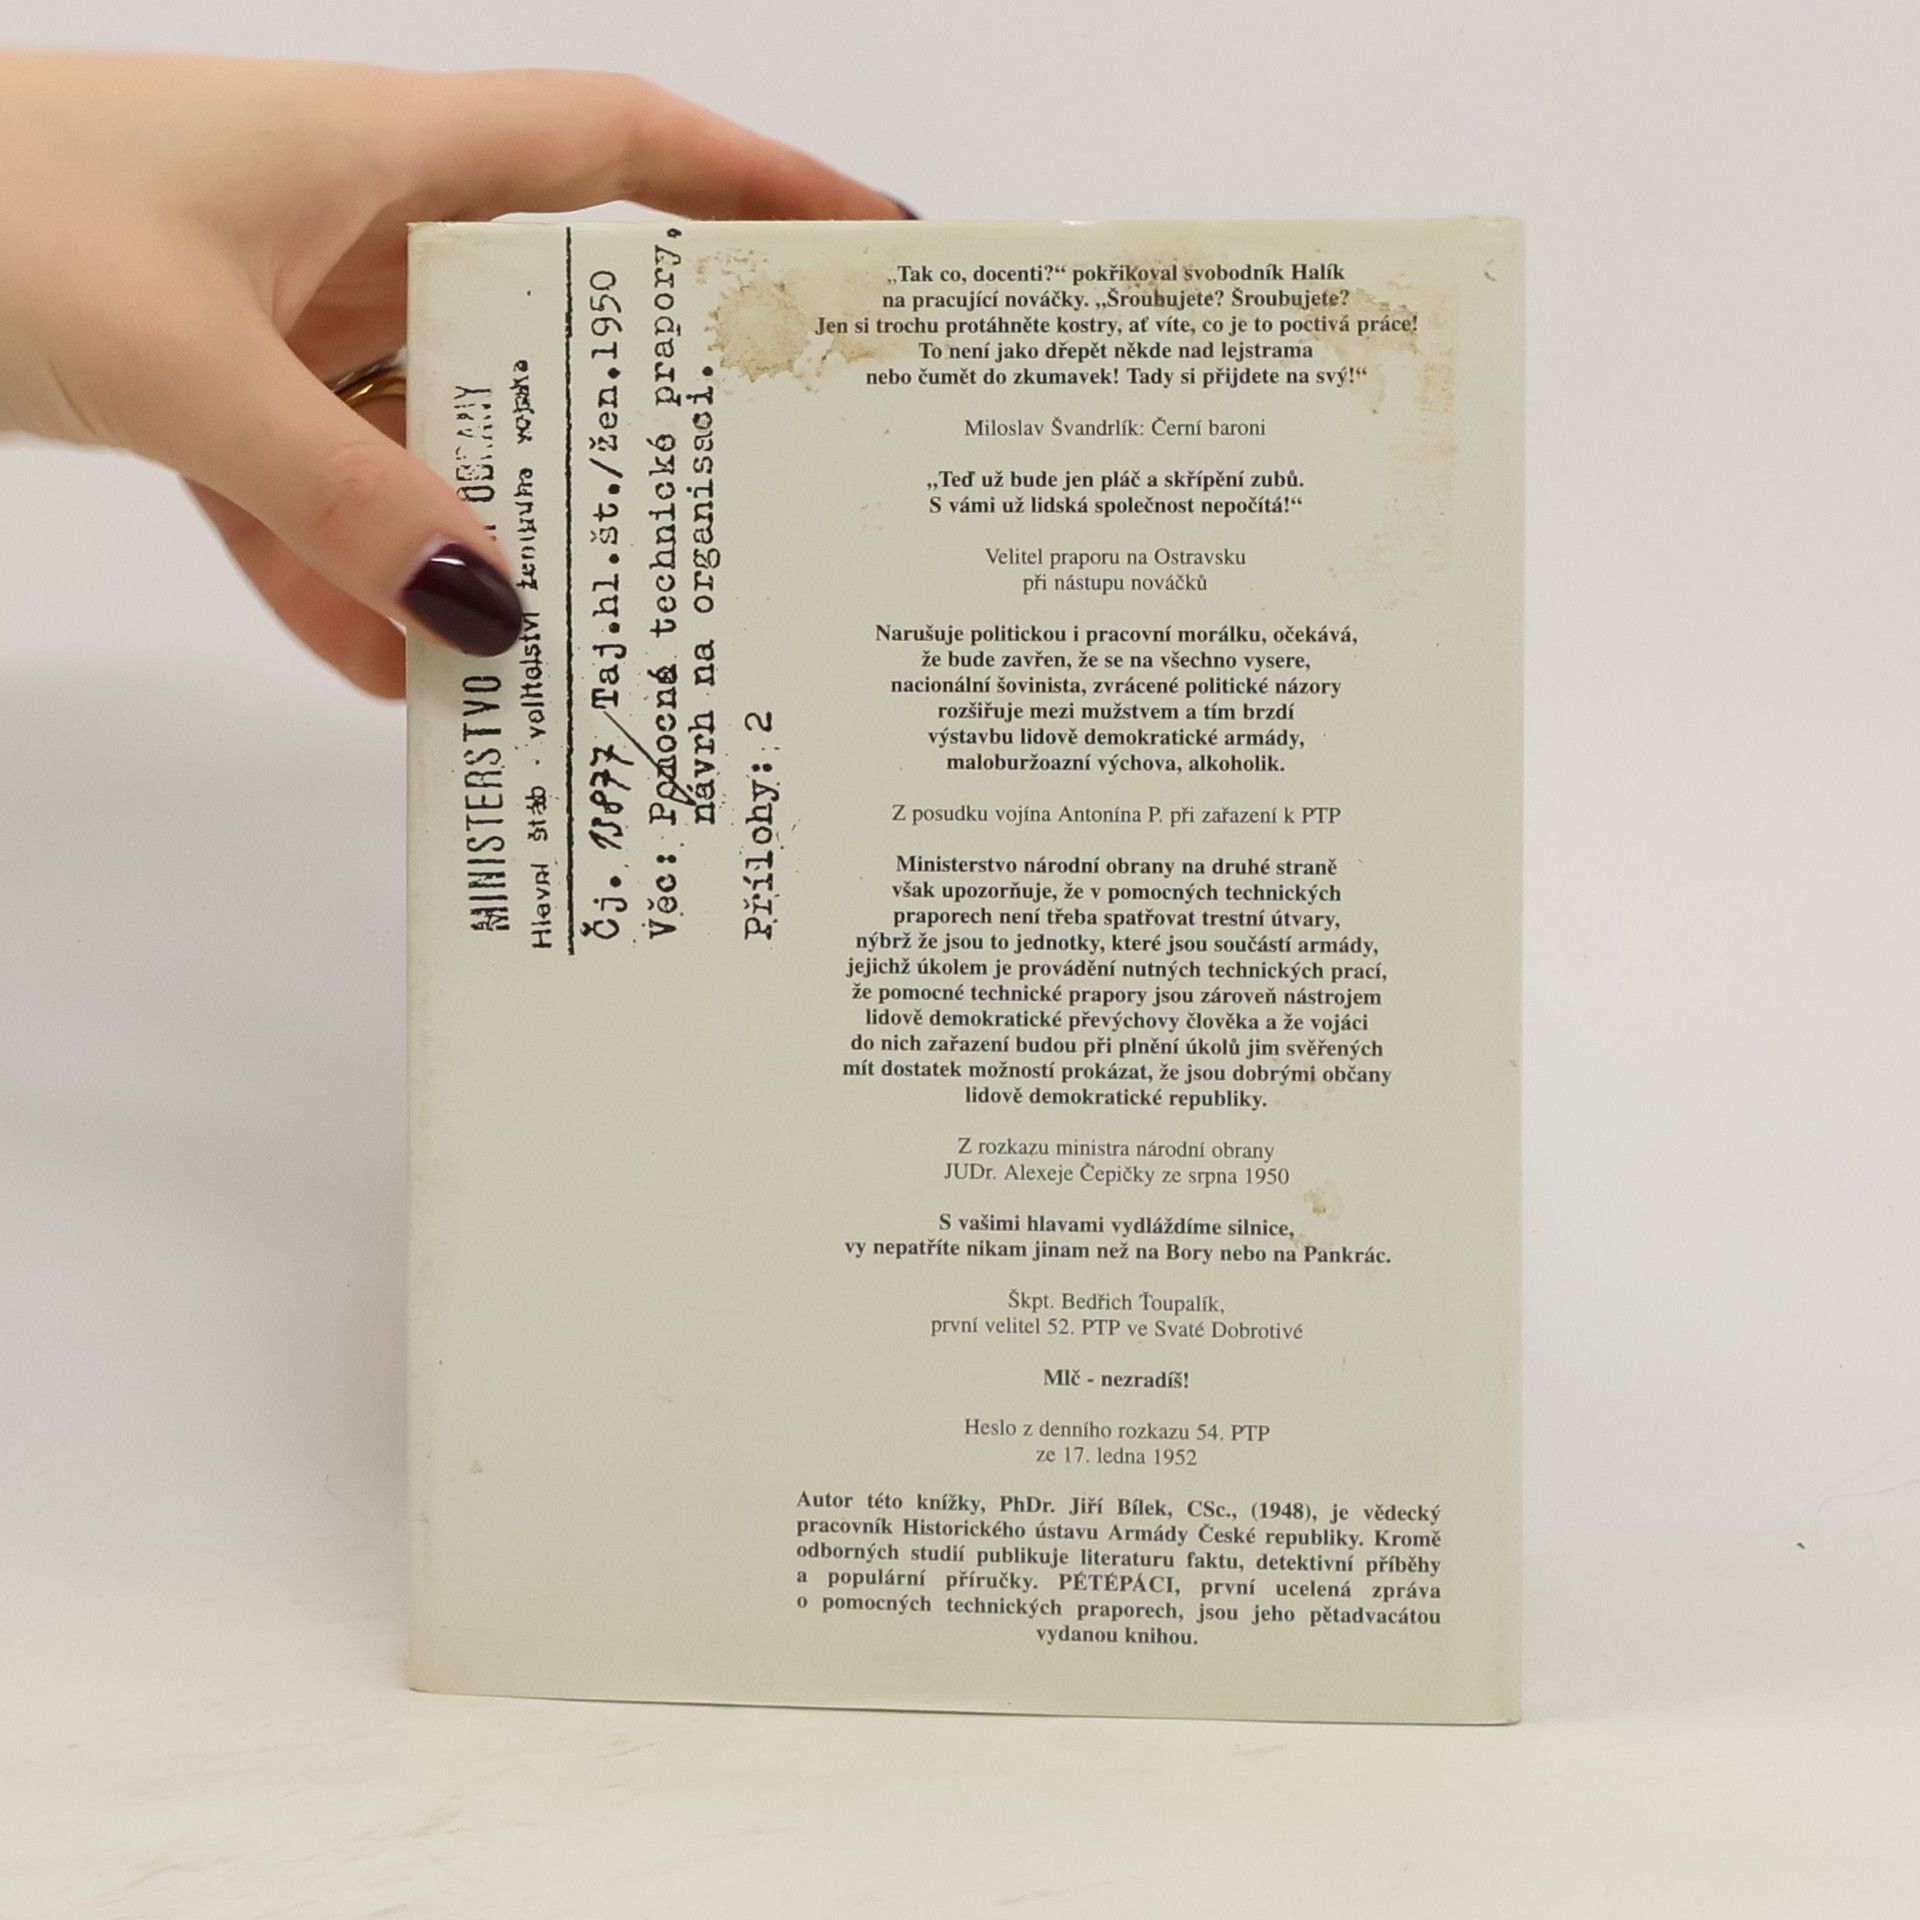 MINISTERSTVO OBRANY
Hlavní štáb - velitelství ženijního vojska
Čj. 15877 Taj.hl.št./žen.1950
Věc: Pomocné technické prapory,
návrh na organisaci.
Přílohy: 2
„Tak co, docenti?“ pokřikoval svobodník Halík
na pracující nováčky. „Šroubujete? Šroubujete?
Jen si trochu protáhněte kostry, ať víte, co je to poctivá práce!
To není jako dřepět někde nad lejstrama
nebo čumět do zkumavek! Tady si přijdete na svý!“
Miloslav Švandrlík: Černí baroni
„Teď už bude jen pláč a skřípění zubů.
S vámi už lidská společnost nepočítá!“
Velitel praporu na Ostravsku
při nástupu nováčků
Narušuje politickou i pracovní morálku, očekává,
že bude zavřen, že se na všechno vysere,
nacionální šovinista, zvrácené politické názory
rozšiřuje mezi mužstvem a tím brzdí
výstavbu lidově demokratické armády,
maloburžoazní výchova, alkoholik.
Z posudku vojína Antonína P. při zařazení k PTP
Ministerstvo národní obrany na druhé straně
však upozorňuje, že v pomocných technických
praporech není třeba spatřovat trestní útvary,
nýbrž že jsou to jednotky, které jsou součástí armády,
jejichž úkolem je provádění nutných technických prací,
že pomocné technické prapory jsou zároveň nástrojem
lidově demokratické převýchovy člověka a že vojáci
do nich zařazení budou při plnění úkolů jim svěřených
mít dostatek možností prokázat, že jsou dobrými občany
lidově demokratické republiky.
Z rozkazu ministra národní obrany
JUDr. Alexeje Čepičky ze srpna 1950
S vašimi hlavami vydláždíme silnice,
vy nepatříte nikam jinam než na Bory nebo na Pankrác.
Škpt. Bedřich Ťoupalík,
první velitel 52. PTP ve Svaté Dobrotivé
Mlč - nezradíš!
Heslo z denního rozkazu 54. PTP
ze 17. ledna 1952
Autor této knížky, PhDr. Jiří Bílek, CSc., (1948), je vědecký
pracovník Historického ústavu Armády České republiky. Kromě
odborných studií publikuje literaturu faktu, detektivní příběhy
a populární příručky. PÉTÉPÁCI, první ucelená zpráva
o pomocných technických praporech, jsou jeho pětadvacátou
vydanou knihou.